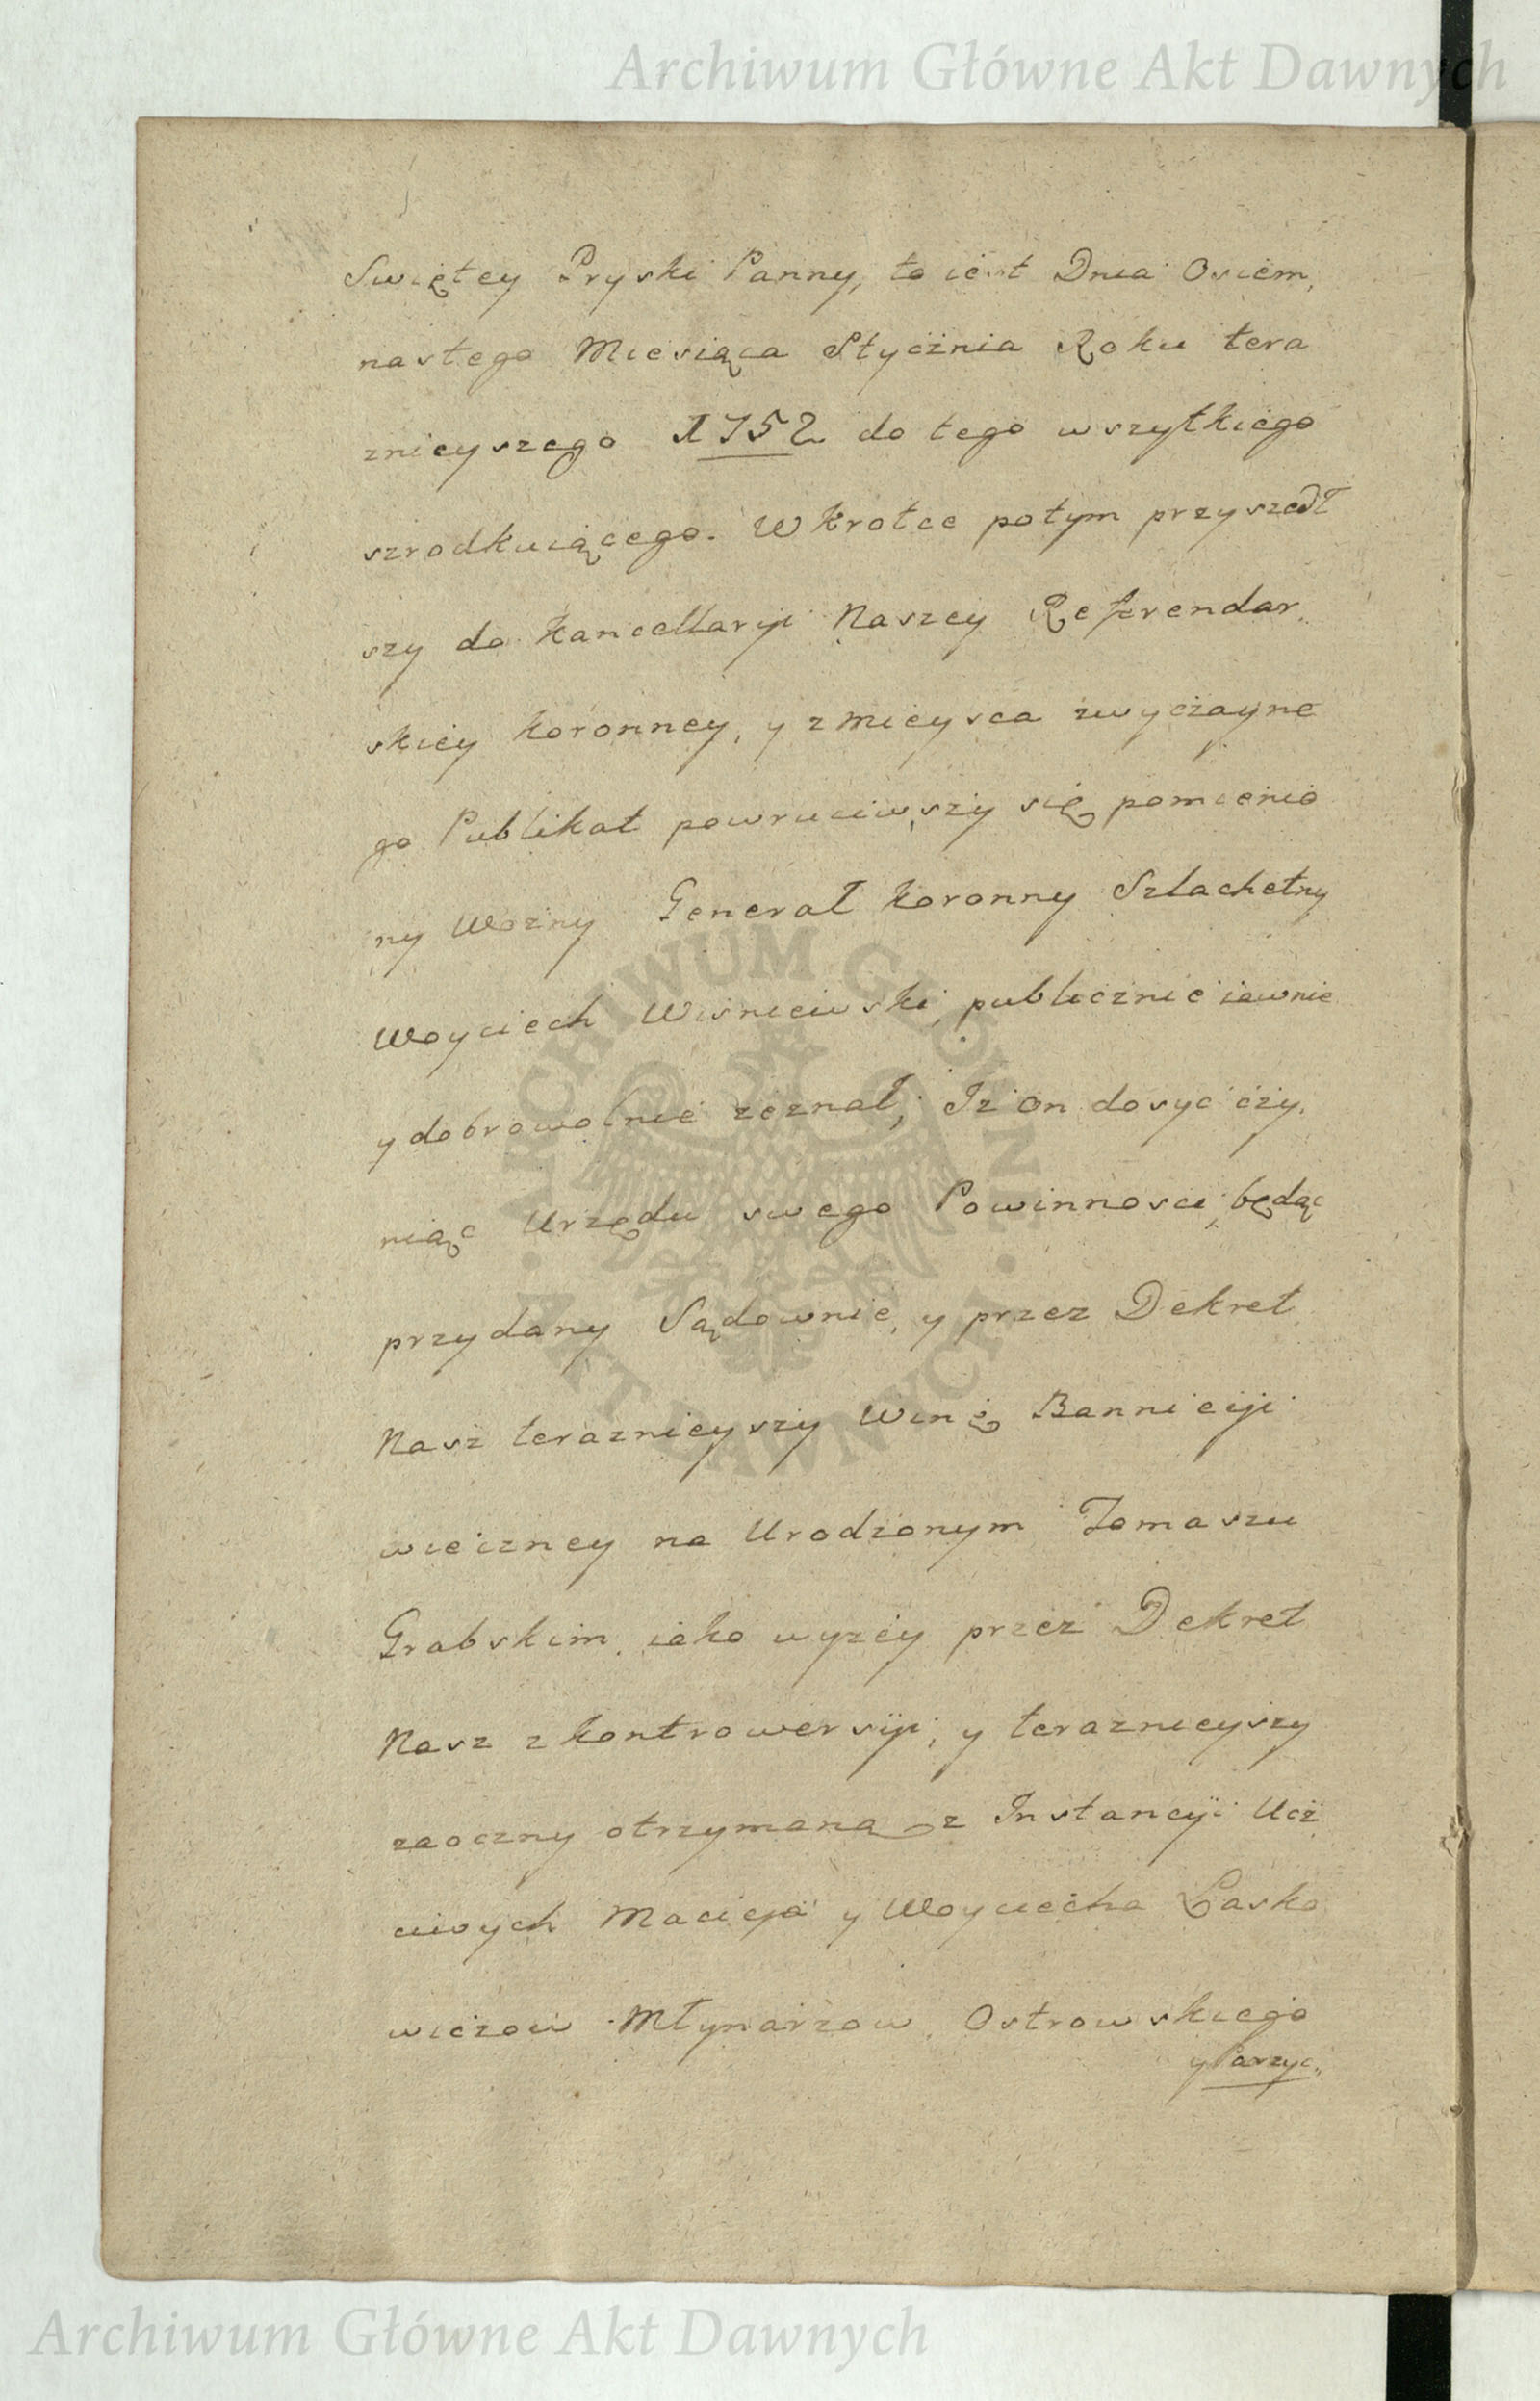 Archiwum Główne Akt Dawnych
Swiętey Pryski Panny, to iest Dnia Osiem,
nastego Miesiąca Stycżnia Roku tera
znieyszego 1752 do tego wszytkiego
szrodkuiącego. W krotce potym przyszedł
szy do Kancellaryi Naszey Referendar,,
skiey Koronney, y z mieysca zwycżayne
go Publikat powruciwszy się pomienio
ny Wozny Generał Koronny Szlachetny
Woyciech Wisniewski, publicznie iawnie
y dobrowolnie zeznał, Iż on dosyc cży,
niąc Urzędu swego Powinnosci, będąc
przydany Sądownie, y przez Dekret
Nasz teraznieyszy Winę Bannicyi
wieczney na Urodzonym Tomaszu
Grabskim, iako wyzey przez Dekret
Nasz z kontrowersyi, y teraznieyszy
zaoczny otrzymaną z Instancyi Ucż
ciwych Macieja y Woyciecha Lasko
wicżow Młynarzow, Ostrowskiego
y Parzyc,,
ARCHIWUM GŁÓWNE
AKT DAWNYCH
Archiwum Główne Akt Dawnych